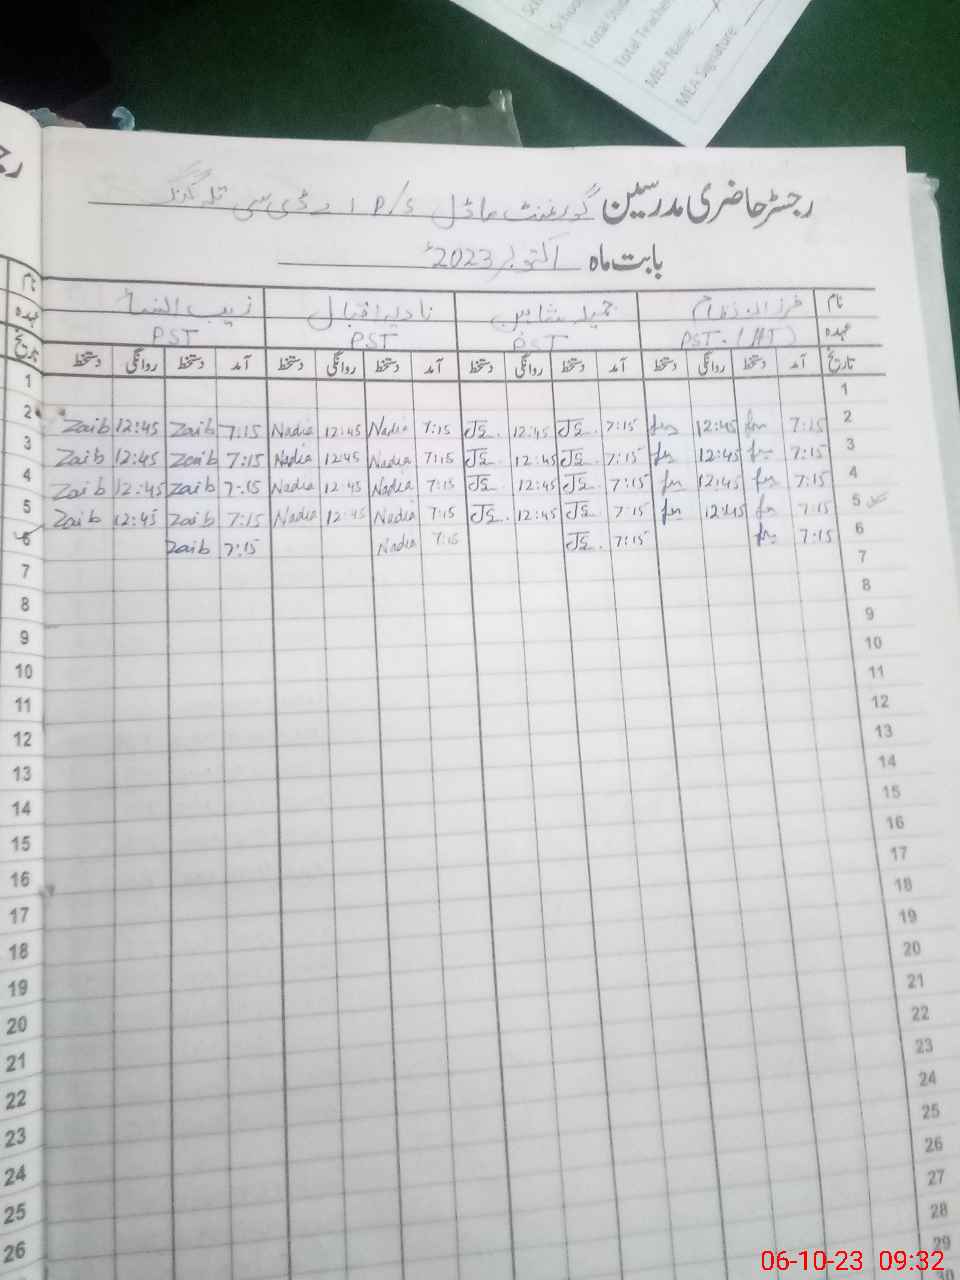 School
Total Stu
Total Teacher
MEA Name:
MEA Signature
رجسٹر حاضری مدرسین گورنمنٹ ماڈل P/S اے ڈی سی تلہ گنگ
بابت ماہ اکتوبر 2023ء
نام زیب النساء نادیہ اقبال جمیلہ شاہین فرزانہ نام
عہدہ PST PST PST PST. (HT) عہدہ
تاریخ دستخط روانگی دستخط آمد دستخط روانگی دستخط آمد دستخط روانگی دستخط آمد دستخط روانگی دستخط آمد تاریخ
1 1
2 Zaib 12:45 Zaib 7:15 Nadia 12:45 Nadia 7:15 12:45 7:15 12:45 7:15 2
3 Zaib 12:45 Zaib 7:15 Nadia 12:45 Nadia 7:15 12:45 7:15 12:45 7:15 3
4 Zaib 12:45 Zaib 7:15 Nadia 12:45 Nadia 7:15 12:45 7:15 12:45 7:15 4
5 Zaib 12:45 Zaib 7:15 Nadia 12:45 Nadia 7:15 12:45 7:15 12:45 7:15 5
6 Zaib 7:15 Nadia 7:15 7:15 7:15 6
7 7
8 8
9 9
10 10
11 11
12 12
13 13
14 14
15 15
16 16
17 17
18 18
19 19
20 20
21 21
22 22
23 23
24 24
25 25
26 26
27
28
29
30
06-10-23 09:32